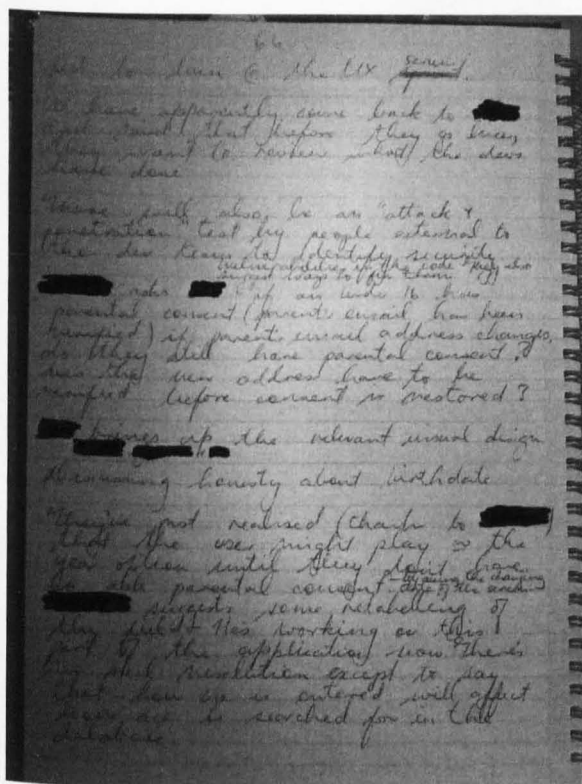 66
down @ the UX
have apparently come back to
and said that before they go live,
they want to review what the devs
have done
There will also be an "attack &
penetration" test by people external to
the dev team to identify security
vulnerabilities in the code they also
suggest ways to fix them
asks if an under 16 has
parental consent (parent's email has been
verified) if parent's email address changes,
do they still have parental consent?
Does the new address have to be
verified before consent is restored?
brings up the relevant visual design
Discussing honesty about birthdate
They've just realised (thanks to
that the user might play w the
year option until they don't have
to seek parental consent
by using the changing
state of the screen
suggests some relabelling of
the field. He's working on this
part of the application now. There's
no real resolution except to say
that how age is entered will affect
how age is searched for in the
database.